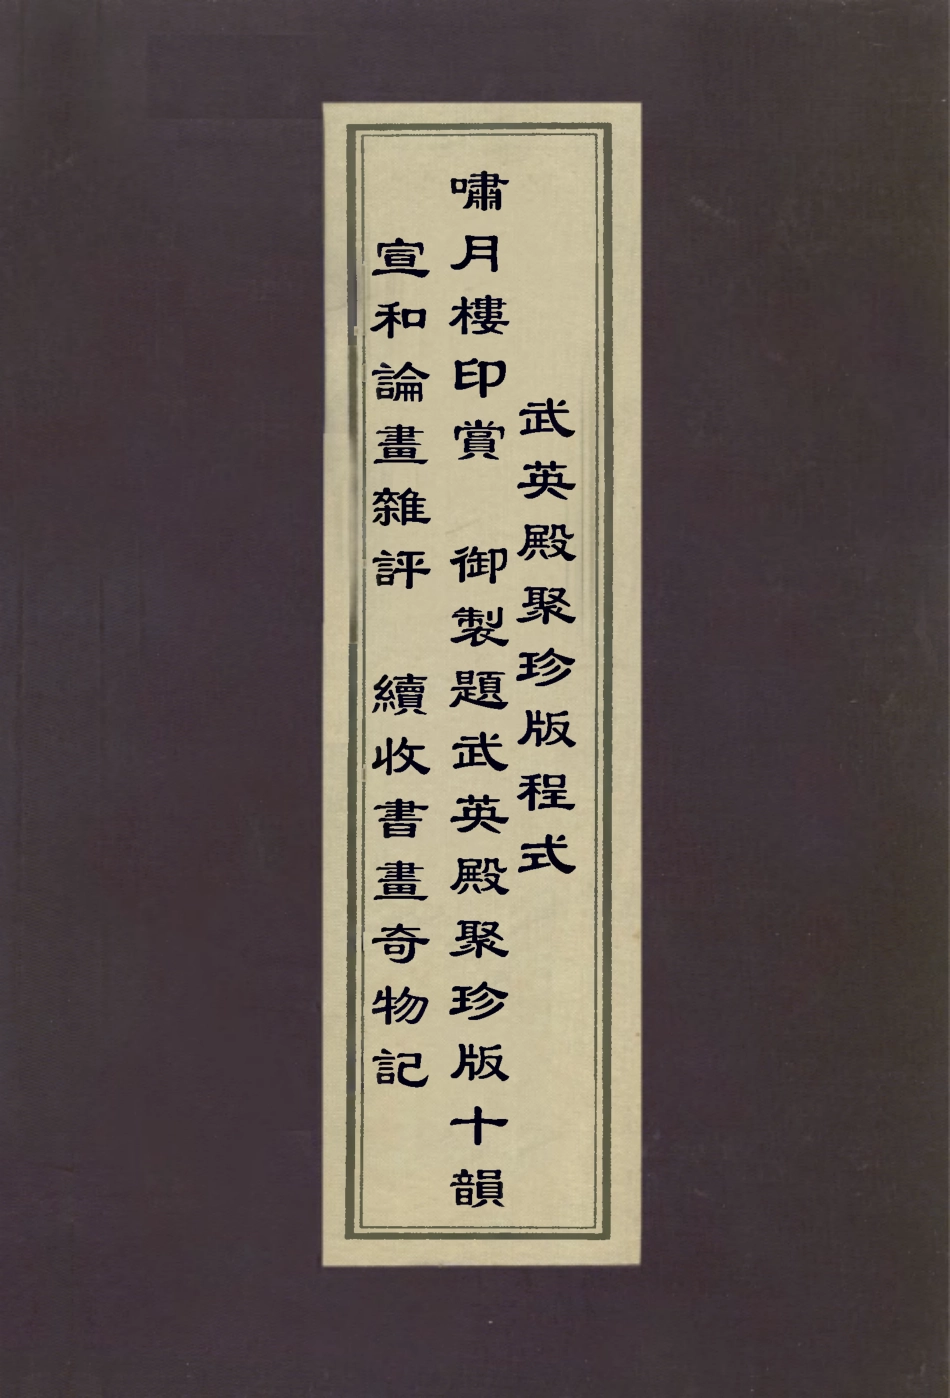 武英殿聚珍版程式
嘯月樓印賞　御製題武英殿聚珍版十韻
宣和論畫雜評　續收書畫奇物記